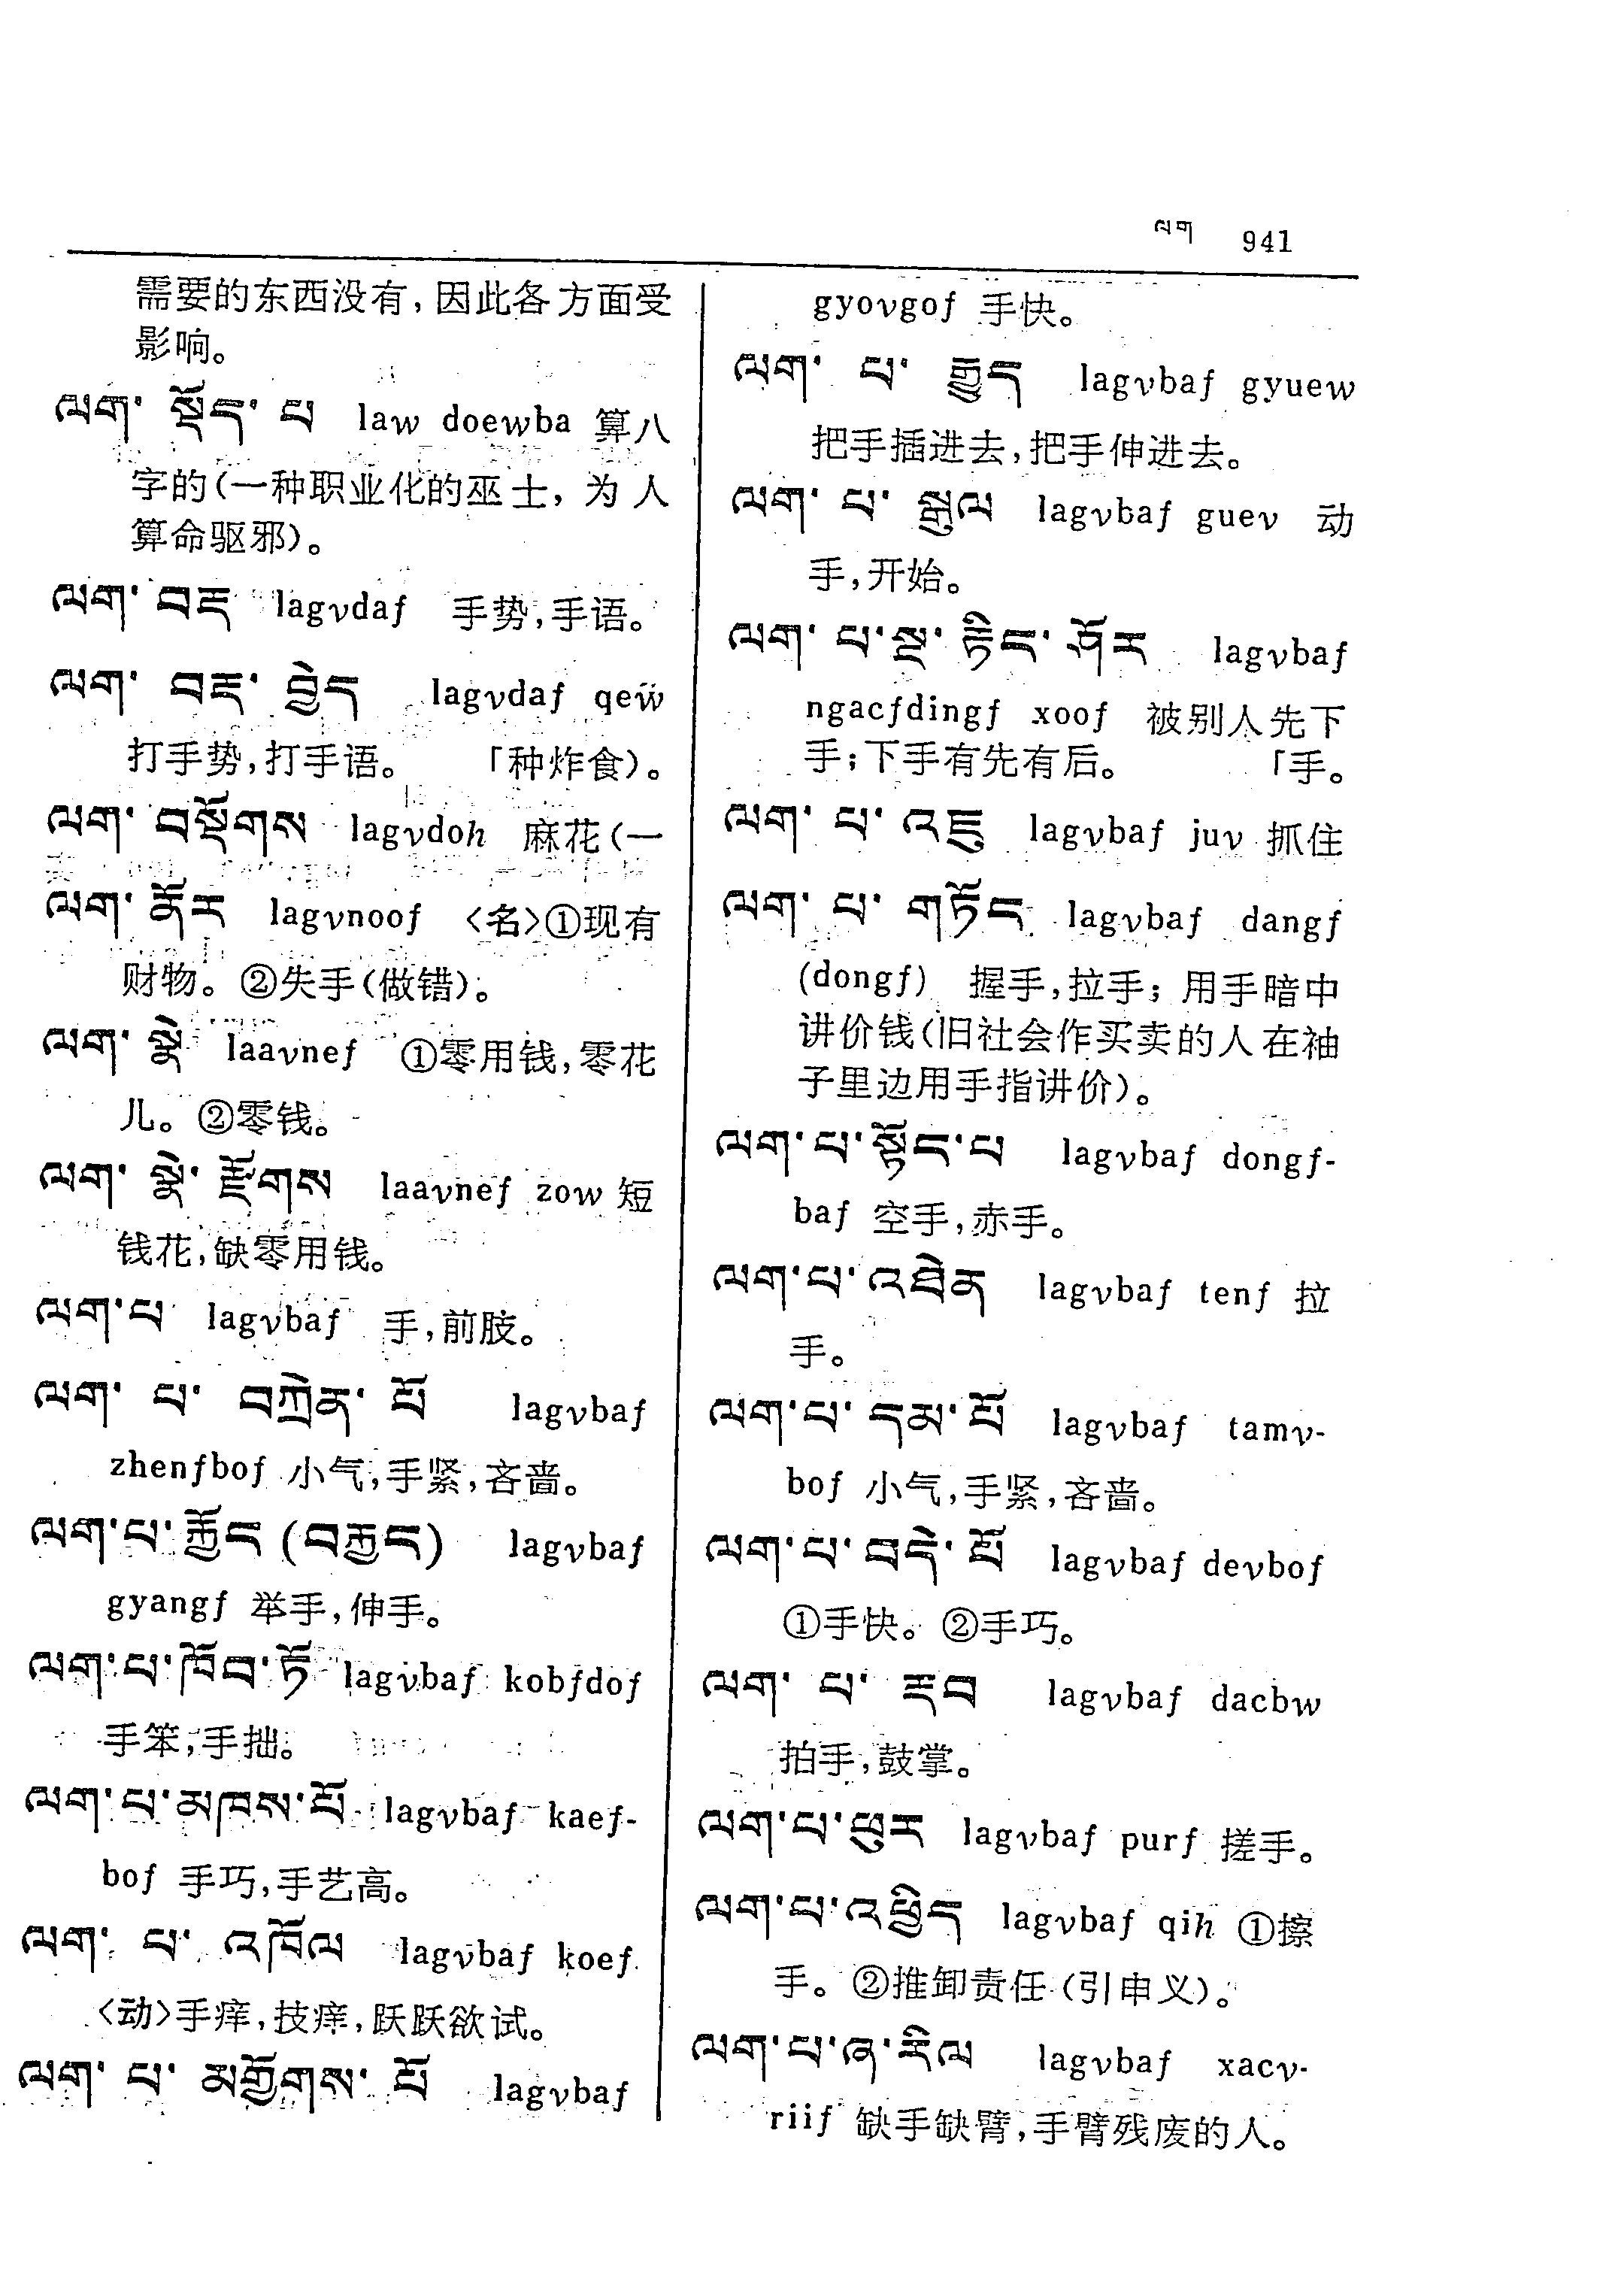 ལག 941
需要的东西没有，因此各方面受
影响。
ལག་ སྡོད་ པ law doewba 算八
字的（一种职业化的巫士，为人
算命驱邪）。
ལག་ བརྡ lagvdaf 手势，手语。
ལག་ བརྡ་ བྱེད lagvdaf qew
打手势，打手语。 「种炸食）。
ལག་ བསྡོགས lagvdoh 麻花（一
ལག་ ནོར lagvnoof 〈名〉①现有
财物。②失手（做错）。
ལག་ སྣེ laavnef ①零用钱，零花
儿。②零钱。
ལག་ སྣེ་ རྫོགས laavnef zow 短
钱花，缺零用钱。
ལག་པ lagvbaf 手，前肢。
ལག་ པ་ བཀྲེན་ པོ lagvbaf
zhenfbof 小气，手紧，吝啬。
ལག་པ་རྐྱོང（བརྐྱང） lagvbaf
gyangf 举手，伸手。
ལག་པ་ཁོབ་ཏོ lagvbaf kobfdof
手笨，手拙。
ལག་པ་མཁས་པོ lagvbaf kaef-
bof 手巧，手艺高。
ལག་ པ་ འཁོལ lagvbaf koef
〈动〉手痒，技痒，跃跃欲试。
ལག་ པ་ མགྱོགས་ པོ lagvbaf
gyovgof 手快。
ལག་ པ་ རྒྱུད lagvbaf gyuew
把手插进去，把手伸进去。
ལག་ པ་ སྒུལ lagvbaf guev 动
手，开始。
ལག་ པ་སྔ་ རྟིང་ ཤོར lagvbaf
ngacfdingf xoof 被别人先下
手；下手有先有后。 「手。
ལག་ པ་ འཇུ lagvbaf juv 抓住
ལག་ པ་ གཏོང lagvbaf dangf
(dongf) 握手，拉手；用手暗中
讲价钱（旧社会作买卖的人在袖
子里边用手指讲价）。
ལག་པ་སྟོང་པ lagvbaf dongf-
baf 空手，赤手。
ལག་པ་འཐེན lagvbaf tenf 拉
手。
ལག་པ་ དམ་ པོ lagvbaf tamv-
bof 小气，手紧，吝啬。
ལག་པ་ བདེ་ པོ lagvbaf devbof
①手快。②手巧。
ལག་ པ་ རྡབ lagvbaf dacbw
拍手，鼓掌。
ལག་པ་ཕུར lagvbaf purf 搓手。
ལག་པ་འཕྱིད lagvbaf qih ①擦
手。②推卸责任（引申义）。
ལག་པ་ཞ་རིལ lagvbaf xacv-
riif 缺手缺臂，手臂残废的人。